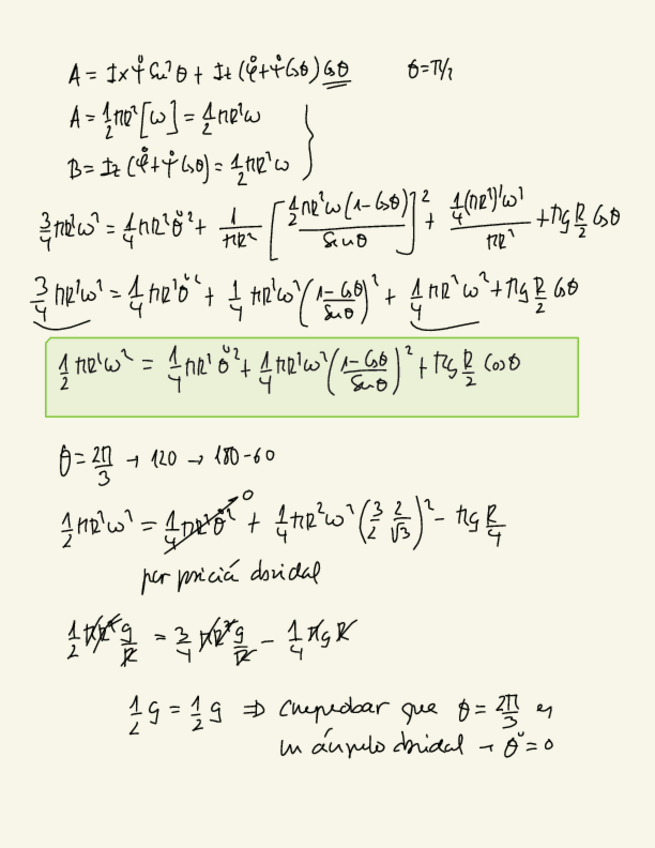 A = Ix ψ̇ Sin²θ + Iz (φ̇ + ψ̇ Cosθ) Cosθ θ = π/2
A = 1/2 mR² [ω] = 1/2 mR²ω
B = Iz (φ̇ + ψ̇ Cosθ) = 1/2 mR²ω
3/4 mR²ω² = 1/4 mR²θ̇² + 1/mR² [ (1/2 mR²ω (1 - Cosθ)) / Sinθ ]² + (1/4 (mR²)²ω²) / mR² + mg R/2 Cosθ
3/4 mR²ω² = 1/4 mR²θ̇² + 1/4 mR²ω² ( (1 - Cosθ) / Sinθ )² + 1/4 mR²ω² + mg R/2 Cosθ
1/2 mR²ω² = 1/4 mR²θ̇² + 1/4 mR²ω² ( (1 - Cosθ) / Senθ )² + mg R/2 Cosθ
θ = 2π/3 → 120 → 180 - 60
1/2 mR²ω² = 1/4 mR²θ̇² 0 + 1/4 mR²ω² ( 3/2 2/√3 )² - mg R/4
por posición absidal
1/2 mR² g/R = 3/4 mR² g/R - 1/4 mgR
1/2 g = 1/2 g ⇒ Comprobar que θ = 2π/3 es
un ángulo absidal → θ̇ = 0